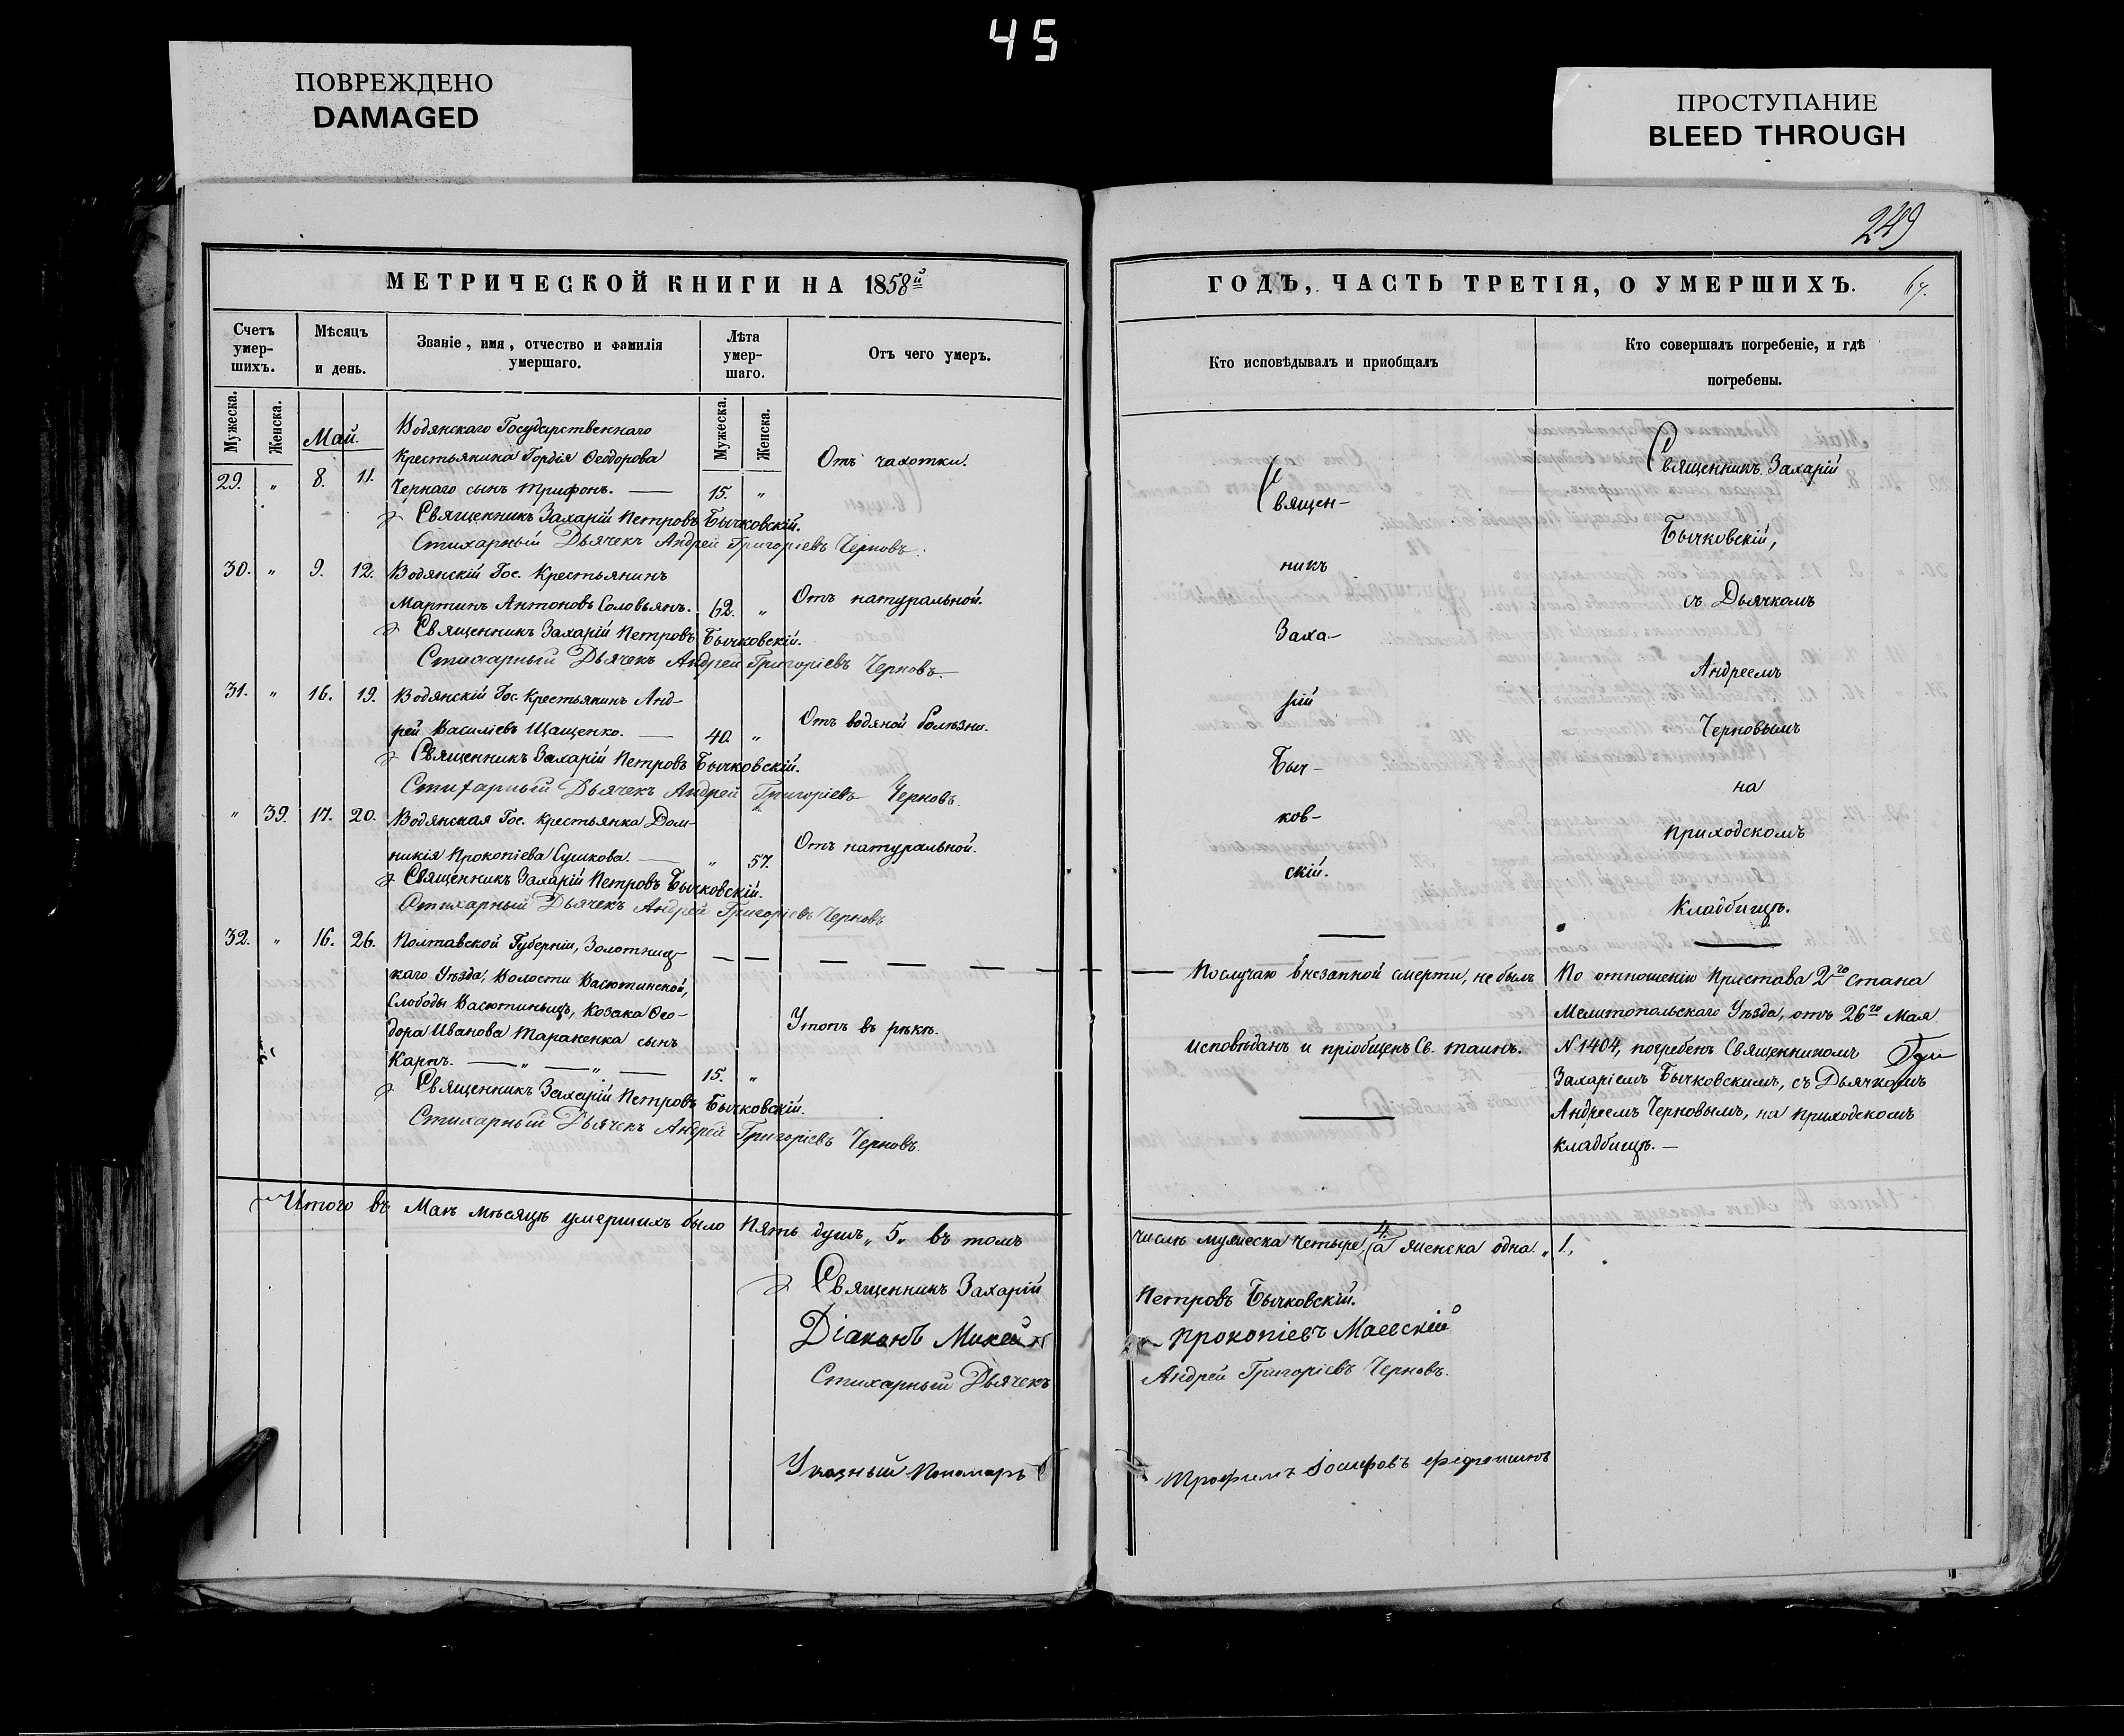 45
ПОВРЕЖДЕНО
DAMAGED
ПРОСТУПАНИЕ
BLEED THROUGH
249
67.
МЕТРИЧЕСКОЙ КНИГИ НА 1858й
Счетъ умер-шихъ.
Мѣсяцъ и день.
Званіе, имя, отчество и фамилія умершаго.
Лѣта умер-шаго.
Отъ чего умеръ.
Мужеска.
Женска.
Мужеска.
Женска.
Май.
Водянскаго Государственнаго
крестьянина Гордія Ѳеодорова
Отъ чахотки.
29. " 8. 11. Чернаго сынъ Трифонъ. — 15. "
Священникъ Захарій Петровъ Бычковскій.
Стихарный Дьячекъ Андрей Григоріевъ Черновъ.
30. " 9. 12. Водянскій Гос. Крестьянинъ
Мартинъ Антоновъ Соловьянъ. 62. " Отъ натуральной.
Священникъ Захарій Петровъ Бычковскій.
Стихарный Дьячекъ Андрей Григоріевъ Черновъ.
31. " 16. 19. Водянскій Гос. Крестьянинъ Анд-
рей Василіевъ Щащенко. — 40. " Отъ водяной болѣзни.
Священникъ Захарій Петровъ Бычковскій.
Стихарный Дьячекъ Андрей Григоріевъ Черновъ.
" 39. 17. 20. Водянская Гос. крестьянка Дом-
никія Прокопіева Сушкова. — " 57. Отъ натуральной.
Священникъ Захарій Петровъ Бычковскій.
Стихарный Дьячекъ Андрей Григоріевъ Черновъ
32. " 16. 26. Полтавской Губерніи, Золотниц-
каго Уѣзда, Волости Васютинской,
Слободы Васютинцъ, Козака Ѳео-
дора Иванова Тараненка сынъ
Утопъ въ рѣкѣ.
Карпъ. — " — " — 15. "
Священникъ Захарій Петровъ Бычковскій.
Стихарный Дьячекъ Андрей Григоріевъ Черновъ.
Итого въ Маѣ мѣсяцѣ умершихъ было пять душъ „ 5 „ въ томъ
Священникъ Захарій
Діаконъ
Стихарный Дьячекъ
Указный Пономарь
ГОДЪ, ЧАСТЬ ТРЕТІЯ, О УМЕРШИХЪ.
Кто исповѣдывалъ и приобщалъ
Кто совершалъ погребеніе, и гдѣ
погребены.
Священ-
никъ
Заха-
рій
Быч-
ков-
скій.
Священникъ Захарій
Бычковскій,
съ Дьячкомъ
Андреемъ
Черновымъ
на
приходскомъ
кладбищѣ.
По случаю внезапной смерти, не былъ
исповѣданъ и пріобщенъ Св. таинъ.
По отношенію Пристава 2го стана
Мелитопольскаго Уѣзда, отъ 26го Мая
N 1404, погребенъ Священникомъ
Захаріемъ Бычковскимъ, съ Дьячкомъ
Андреемъ Черновымъ, на приходскомъ
кладбищѣ. —
числѣ мужеска четыре, 4. а женска одна „ 1 „
Петровъ Бычковскій.
Прокопіевъ Маевскій
Андрей Григоріевъ Черновъ.
Трофимъ Іосифовъ